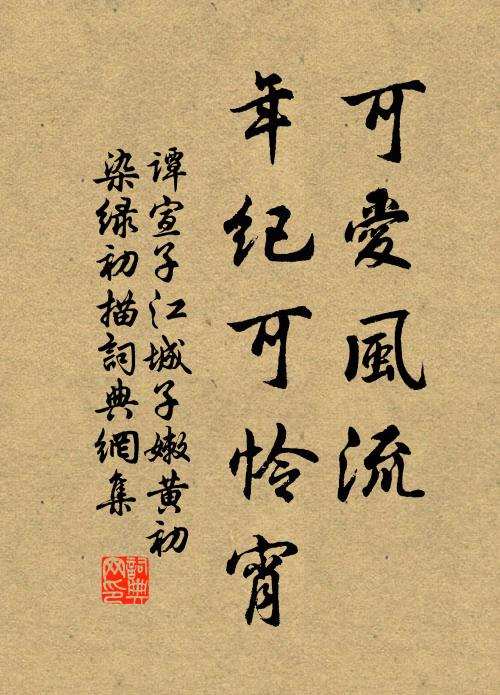 可愛風流
年纪可怜宵
谭宣子江城子嫩黄初
染绿初描詞典網集
詞典
网印